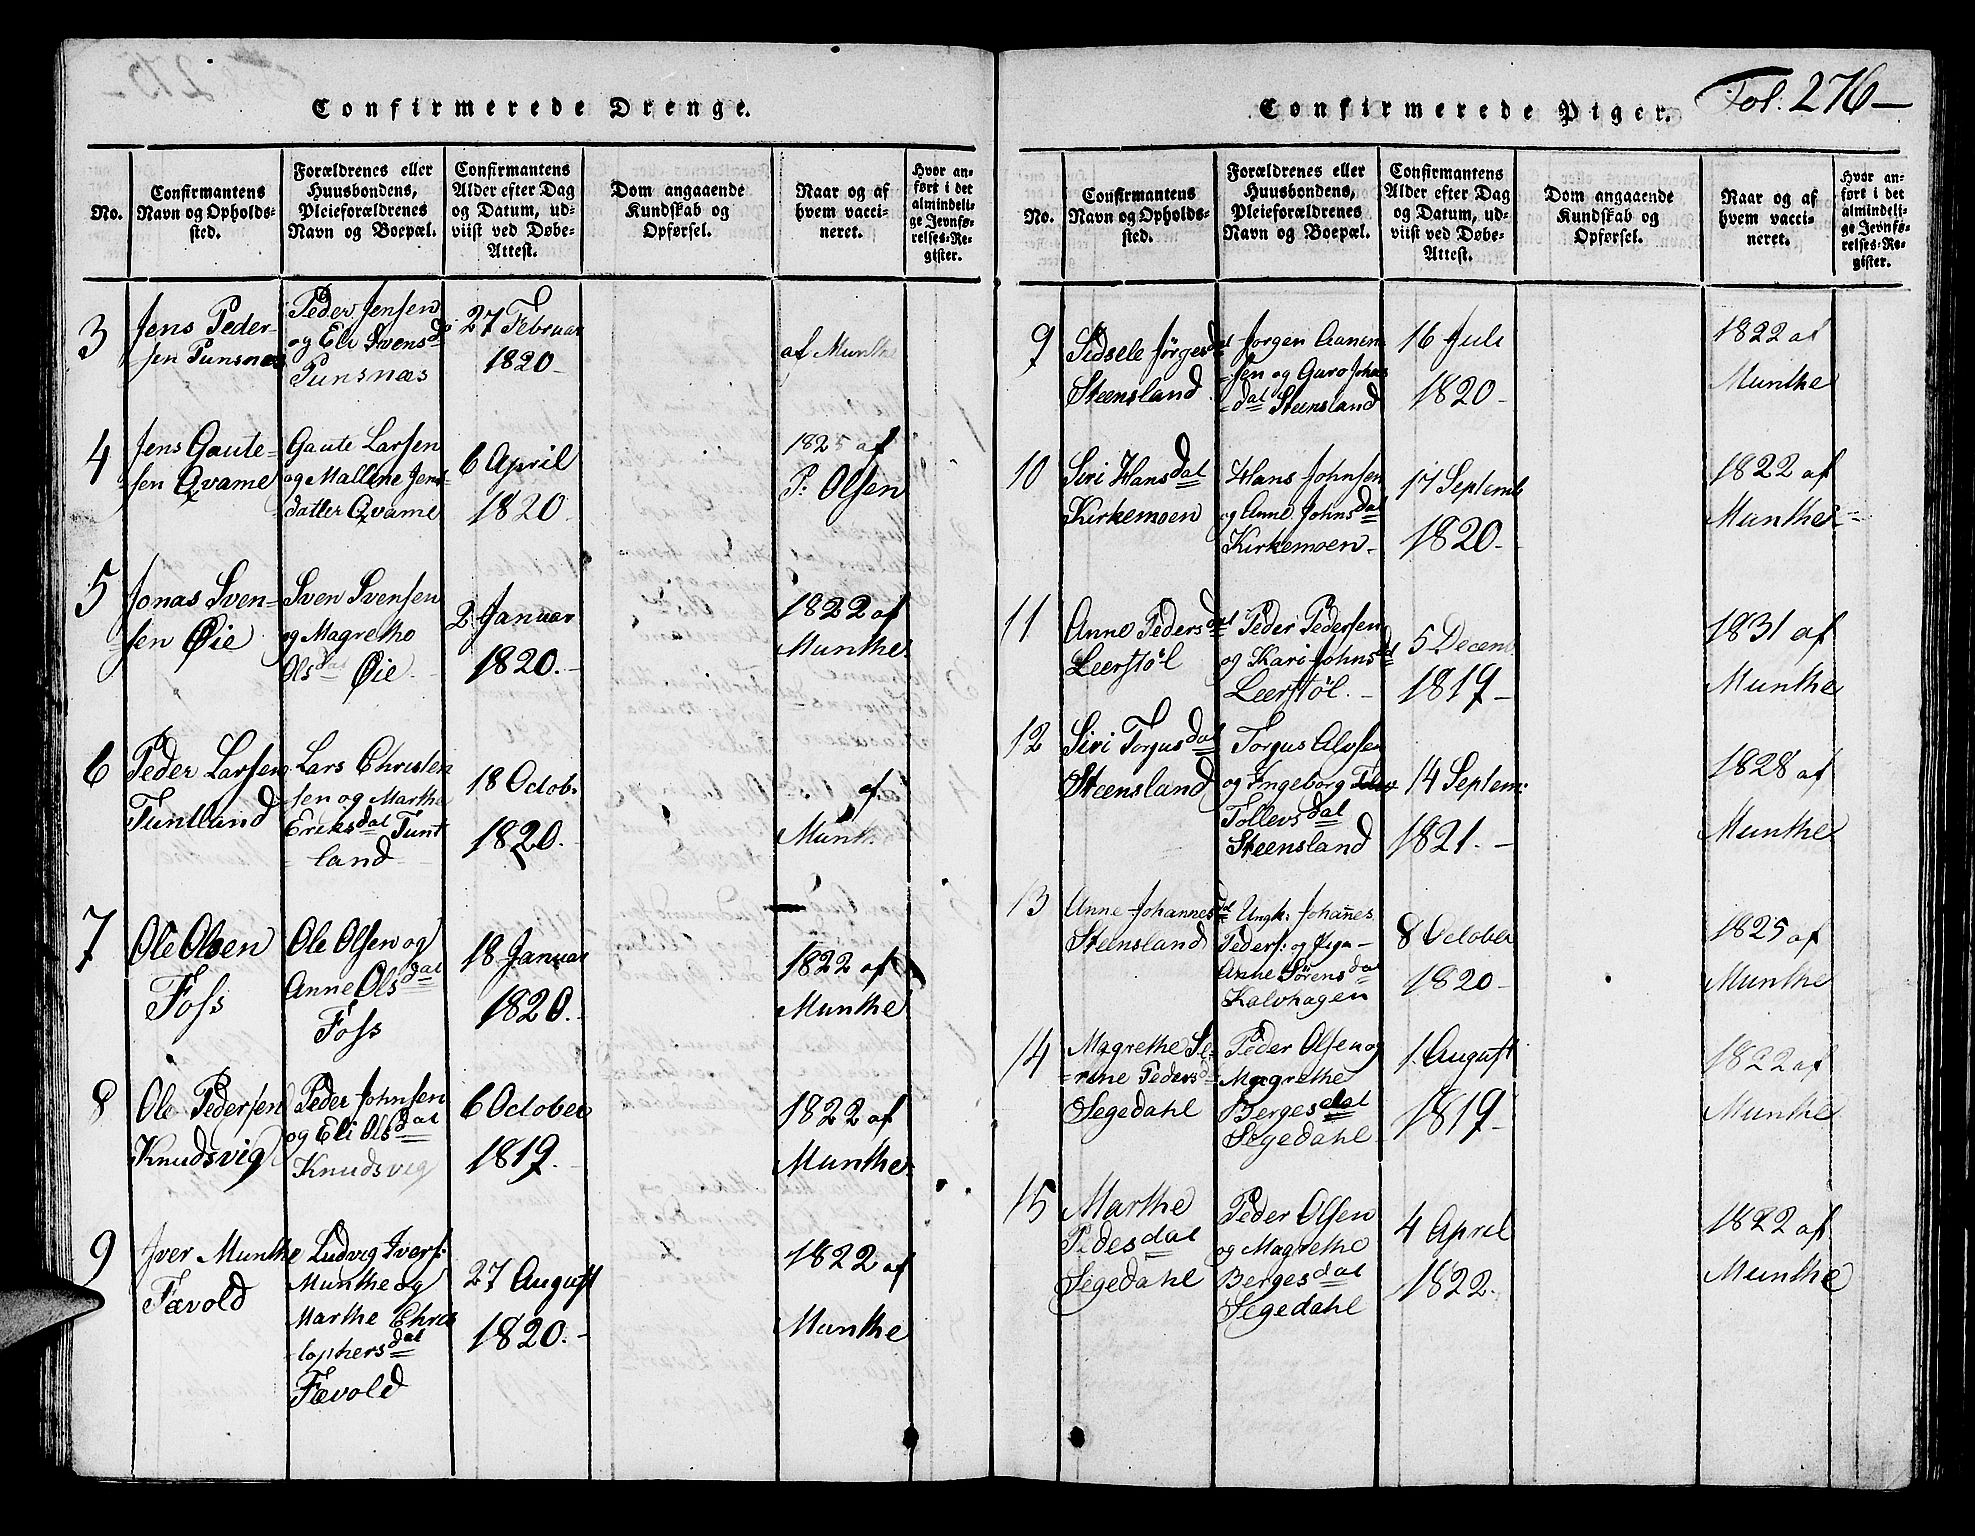 Confirmerede Drenge.
No.
Confirmantens
Navn og Opholds-
sted.
Forældrenes eller
Huusbondens,
Pleieforældrenes
Navn og Boepæl.
Confirmantens
Alder efter Dag
og Datum, ud-
viist ved Døbe-
Attest.
Dom angaaende
Kundskab og
Opførsel.
Naar og af
hvem vacci-
neret.
Hvor an-
ført i det
almindeli-
ge Jevnfø-
relses-Re-
gister.
3
Jens Peder-
sen Punsnæs
Peder Jensen
og Eli Svensd
Punsnæs
27 Februar
1820
af Munthe
4
Jens Gaute-
sen Qvame
Gaute Larsen
og Mallene Jens-
datter Qvame
6 April
1820
1825 af
P: Olsen
5
Jonas Sven-
sen Øie
Sven Svensen
og Magrethe
Olsdat Øie
2 Januar
1820.-
1822 af
Munthe
6
Peder Larsen
Tuntland
Lars Christen
sen og Marthe
Eriksdat Tunt
land
18 Octobr
1820.
af
Munthe
7
Ole Olsen
Foss
Ole Olsen og
Anne Olsdat
Foss
18 Januar
1820.-
1822 af
Munthe
8
Ole Pedersen
Knudsvig
Peder Johnsen
og Eli Olsdat
Knudsvig
6 October
1819.
1822 af
Munthe
9
Iver Munthe
Fævold
Ludvig Ivers:
Munthe og
Marthe Chris
tophersdat
Fævold
27 August
1820.-
1822 af
Munthe
Confirmerede Piger.
Fol. 276-
No.
Confirmantens
Navn og Opholds-
sted.
Forældrenes eller
Huusbondens,
Pleieforældrenes
Navn og Boepæl.
Confirmantens
Alder efter Dag
og Datum, ud-
viist ved Døbe-
Attest.
Dom angaaende
Kundskab og
Opførsel.
Naar og af
hvem vacci-
neret.
Hvor an-
ført i det
almindeli-
ge Jevnfø-
relses-Re-
gister.
9
Sidsele Jørgesdat
Steensland
Jørgen Aanen
sen og Guro Johns
dat Steensland
16 Juli
1820-
1822 af
Munthe
10
Siri Hansdat
Kirkemoen
Hans Johnsen
og Anne Johnsdat
Kirkemoen-
17 Septemb
1820-
1822 af
Munthe
11
Anne Pedersdat
Leerstøl
Peder Pedersen
og Kari Johnsd
Leerstøl.-
5 Decemb
1819-
1831 af
Munthe
12
Siri Torgusdat
Steensland
Torgus Alvsen
og Ingeborg
Tollevsdat
Steensland
14 Septem:
1821.-
1828 af
Munthe
13
Anne Johannesdat
Steensland
Ungk: Johannes
Peders: og Piga-
Anne Sørensdat
Kalvhagen
8 October
1820-
1825 af
Munthe
14
Magrethe Se-
rine Pedersd
Segedahl
Peder Olsen og
Magrethe
Bergesdat
Segedahl
1 August
1819-
1822 af
Munthe
15
Marthe
Pedesdat
Segedahl
Peder Olsen
og Magrethe
Bergesdat
Segedahl
4 April
1822.
1822 af
Munthe